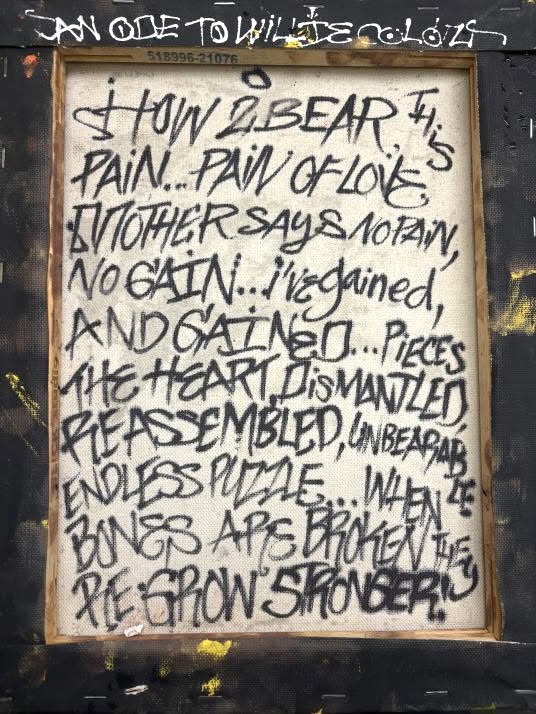 AN ODE TO WILLIE COLÓN
518996-21076
HOW 2 BEAR THIS
PAIN... PAIN OF LOVE
MOTHER SAYS NO PAIN,
NO GAIN... i've gained,
AND GAINED... PIECES
THE HEART, DISMANTLED,
REASSEMBLED, UNBEARABLE
ENDLESS PUZZLE... WHEN
BONES ARE BROKEN THEY
RE-GROW STRONGER!